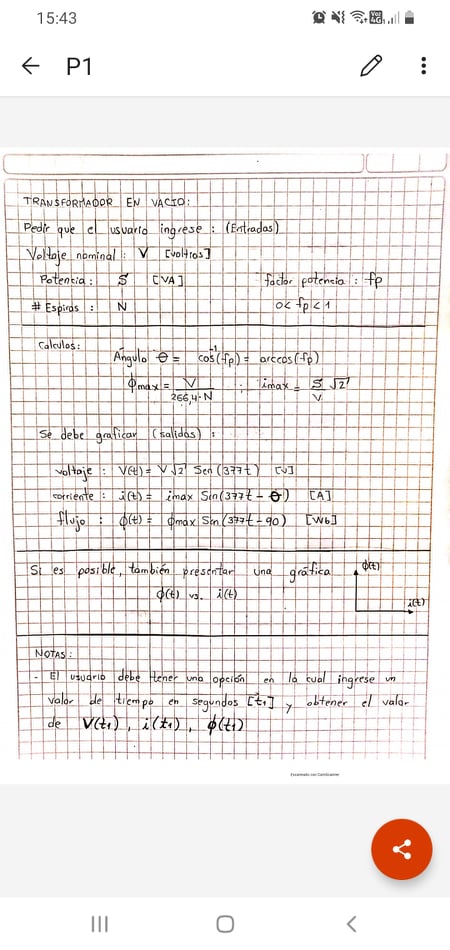 15:43
P1
TRANSFORMADOR EN VACIO:
Pedir que el usuario ingrese : (Entradas)
Voltaje nominal : V [voltios]
Potencia : S [VA] factor potencia : fp
# Espiras : N 0< fp < 1
Calculos:
Ángulo θ = cos⁻¹(fp) = arccos(fp)
ϕmax = V / 266,4·N ; imax = S/V √2
Se debe graficar (salidas) :
voltaje : V(t) = V √2 Sen (377t) [v]
corriente : i(t) = imax Sin(377t - θ) [A]
flujo : ϕ(t) = ϕmax Sen (377t - 90) [Wb]
Si es posible, también presentar una gráfica ϕ(t)
ϕ(t) vs. i(t) i(t)
NOTAS :
- El usuario debe tener una opción en la cual ingrese un
valor de tiempo en segundos [t₁] y obtener el valor
de V(t₁) , i(t₁) , ϕ(t₁)
Escaneado con CamScanner